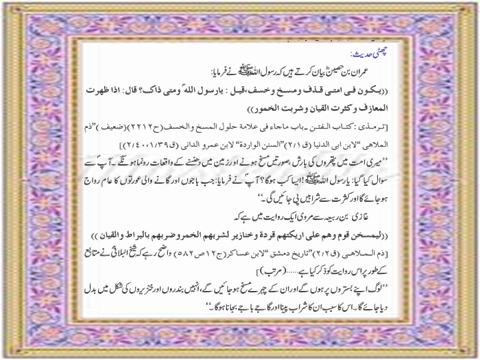 چھٹی حدیث:
عمران بن حصینؓ بیان کرتے ہیں کہ رسول اللہ ﷺ نے فرمایا:
((یکون فی امتی قذف ومسخ وخسف، قیل: یارسول اللہ ومتی ذاک؟ قال: اذا ظھرت
المعازف وکثرت القیان وشربت الخمور))
(ترمذی: کتاب الفتن۔ باب ماجاء فی علامة حلول المسخ والخسف (ح۲۲۱۲) (ضعیف) "ذم
الملاھی" لابن ابی الدنیا (ق۲/۱) "السنن الواردة" لابن عمرو الدانی (ق۳۹/۱، ۲/۴۰)
"میری امت میں پتھروں کی بارش، صورتیں مسخ ہونے اور زمین میں دھنسنے کے واقعات رونما ہونگے۔ آپؐ سے
سوال کیا گیا: یارسول اللہ ﷺ! ایسا کب ہوگا؟ آپؐ نے فرمایا: جب باجوں اور گانے والی عورتوں کا عام رواج
ہو جائے گا اور کثرت سے شرابیں پی جائیں گی۔"
غازی بن ربیعہ سے مروی ایک روایت میں ہے کہ
((لیمسخن قوم وھم علی اریکتھم قردة وخنازیر لشربھم الخمر وضربھم بالبرابط والقیان))
(ذم الملاھی (ق۲/۲) "تاریخ دمشق" لابن عساکر (ج۱۲ ص۵۸۲) واضح رہے کہ شیخ البانیؒ نے متابع
کے طور پر اس روایت کو ذکر کیا ہے.....(مرتب))
"لوگ اپنے بستروں پر ہوں گے اور ان کے چہرے مسخ ہو جائیں گے، انہیں بندروں اور خنزیروں کی شکل میں بدل
دیا جائے گا۔ اس کا سبب ان کا شراب پینا اور گاجے باجے بجانا ہوگا۔"